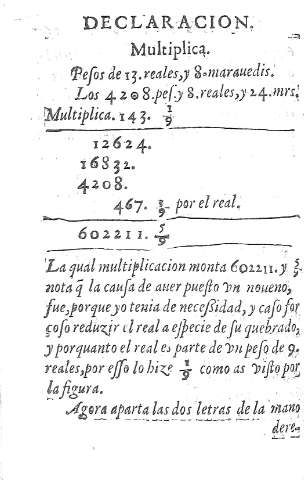 DECLARACION.
Multiplica.
Pesos de 13. reales, y 8. maravedis.
Los 4208. pes. y 8. reales, y 24. mrs.
Multiplica. 143. 1/9
12624.
16832.
4208.
467. 5/9 por el real.
602211. 5/9
La qual multiplicacion monta 602211. y 5/9.
nota q̃ la causa de aver puesto vn noueno,
fue, porque yo tenia de necessidad, y caso for
çoso reduzir el real a especie de su quebrado,
y porquanto el real es parte de vn peso de 9.
reales, por esso lo hize 1/9 como as visto por
la figura.
Agora aparta las dos letras de la mano
dere-